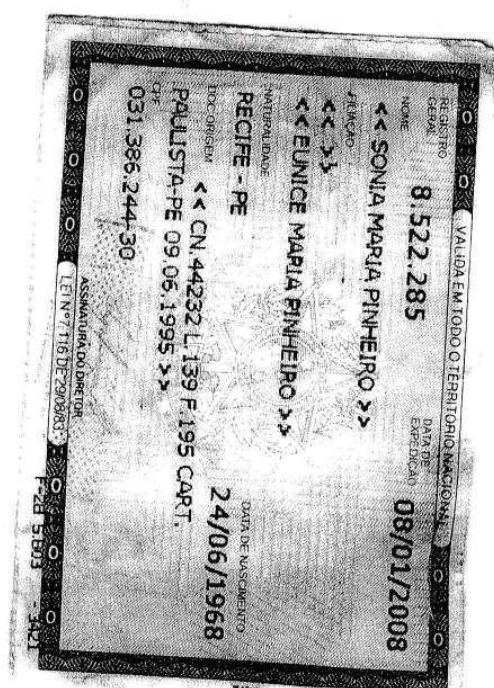 VALIDA EM TODO O TERRITÓRIO NACIONAL
REGISTRO GERAL 8.522.285 DATA DE EXPEDIÇÃO 08/01/2008
NOME << SONIA MARIA PINHEIRO >>
FILIAÇÃO << >>
<< EUNICE MARIA PINHEIRO >>
NATURALIDADE DATA DE NASCIMENTO
RECIFE - PE 24/06/1968
DOC ORIGEM << CN.44232 L.139 F.195 CART.
PAULISTA-PE 09.06.1995 >>
CPF
031.386.244-30
ASSINATURA DO DIRETOR
LEI Nº 7.116 DE 29/08/83